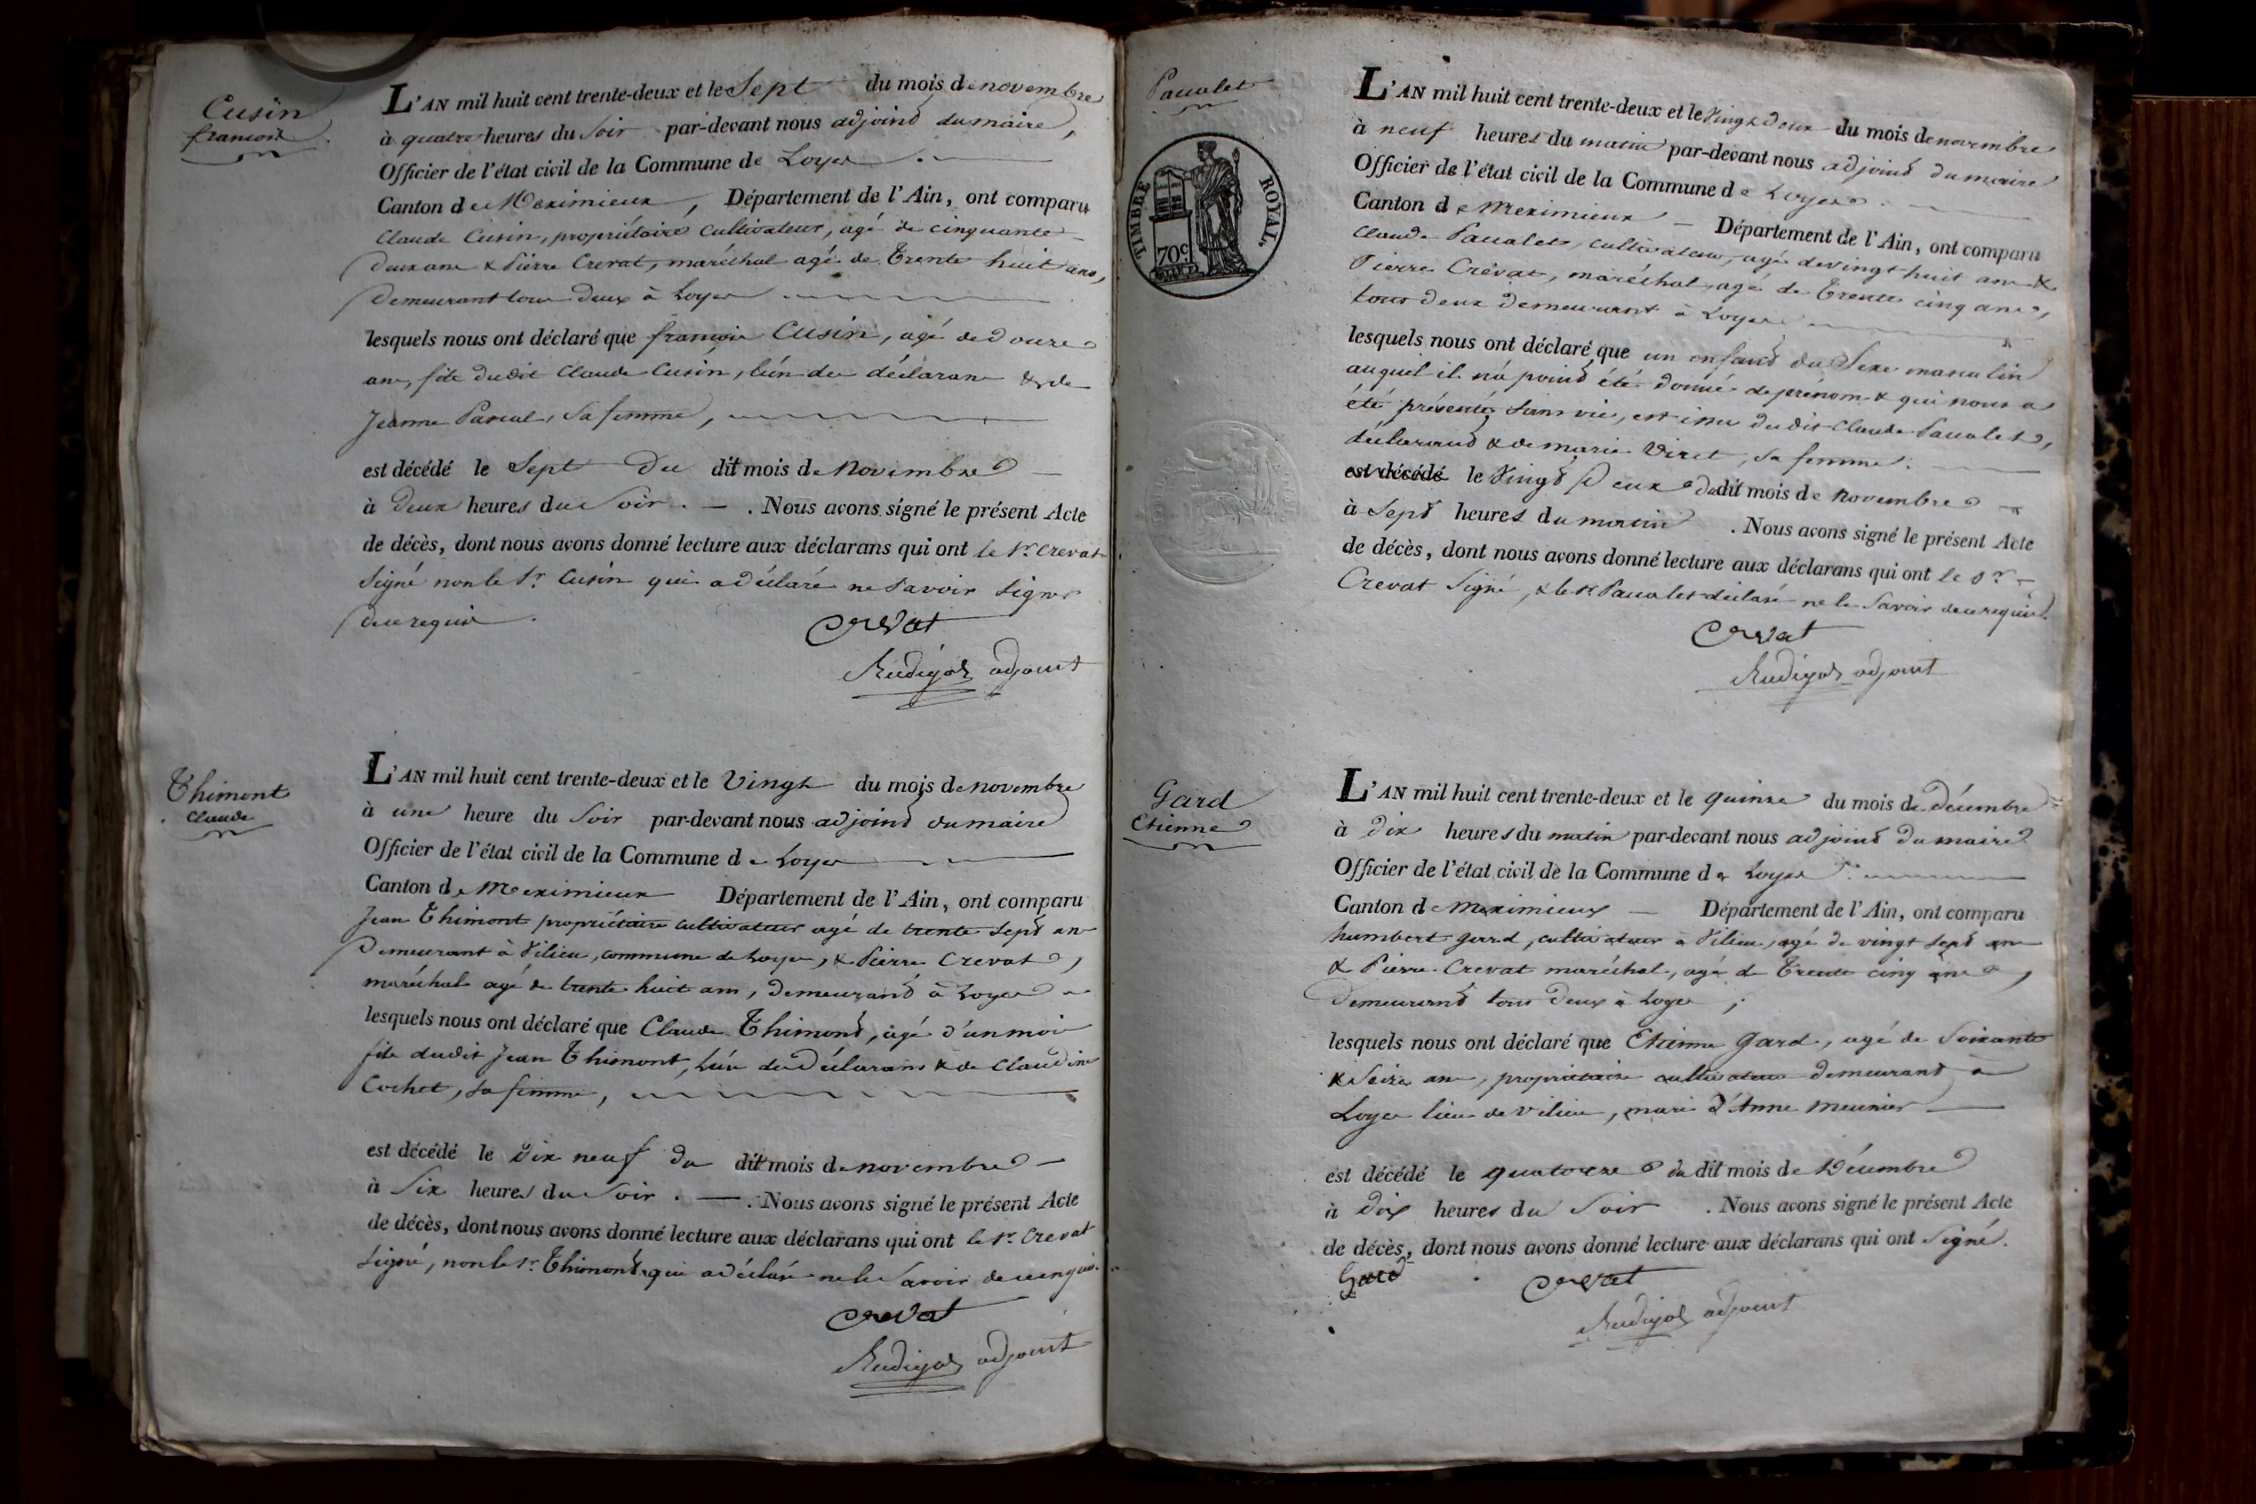 Cusin
françois
L'AN mil huit cent trente-deux et le Sept du mois de novembre
à quatre heures du Soir par-devant nous adjoind du maire,
Officier de l'état civil de la Commune de Loyes
Canton de Meximieux, Département de l'Ain, ont comparu
Claude Cusin, propriétaire cultivateur, agé de cinquante
deux ans & Pierre Crevat, maréchal agé de Trente huit ans,
Demeurant tous deux à Loyes
lesquels nous ont déclaré que françois Cusin, agé de douze
ans, fils dudit Claude Cusin, l'un des déclarans & de
Jeanne Pascal, Sa femme,
est décédé le Sept Du dit mois de Novembre
à Deux heures du Soir. Nous avons signé le présent Acte
de décès, dont nous avons donné lecture aux déclarans qui ont le Sr. Crevat
Signé non le Sr. Cusin qui a déclaré ne Savoir Signer
de ce requis.
Crevat
Rudigoz adjoint
Thimont
Claude
L'AN mil huit cent trente-deux et le Vingt du mois de novembre
à une heure du Soir par-devant nous adjoind du maire
Officier de l'état civil de la Commune de Loyes
Canton de Meximieux Département de l'Ain, ont comparu
Jean Thimont propriétaire cultivateur agé de trente Sept ans
Demeurant à Vilieu, commune de Loyes, & Pierre Crevat,
maréchal agé de trente huit ans, Demeurand à Loyes
lesquels nous ont déclaré que Claude Thimond, agé d'un mois
fils dudit Jean Thimont, l'un des Déclarans & de Claudine
Cochet, Sa femme,
est décédé le Dix neuf du dit mois de novembre
à Six heures du Soir. Nous avons signé le présent Acte
de décès, dont nous avons donné lecture aux déclarans qui ont le Sr. Crevat
Signé, non le Sr. Thimond qui a déclaré ne le Savoir de ce requis.
Crevat
Rudigoz adjoint
Paccalet
TIMBRE ROYAL.
70c
L'AN mil huit cent trente-deux et le Vingt Deux du mois de novembre
à neuf heures du matin par-devant nous adjoind du maire
Officier de l'état civil de la Commune de Loyes
Canton de Meximieux Département de l'Ain, ont comparu
Claude Paccalet, cultivateur, agé de vingt huit ans &
Pierre Crevat, maréchal, agé de Trente cinq ans,
tous deux Demeurant à Loyes
lesquels nous ont déclaré que un enfand du Sexe masculin
auquel il n'a poind été donné de prénom & qui nous a
été présenté Sans vie, est issu dudit Claude Paccalet,
déclarand & de marie Viret, Sa femme.
est décédé le Vingt Deux du dit mois de Novembre
à Sept heures du matin. Nous avons signé le présent Acte
de décès, dont nous avons donné lecture aux déclarans qui ont le Sr.
Crevat Signé, & le Sr Paccalet déclaré ne le Savoir de ce requis.
Crevat
Rudigoz adjoint
Gard
Etienne
L'AN mil huit cent trente-deux et le quinze du mois de Décembre
à Dix heures du matin par-devant nous adjoind du maire
Officier de l'état civil de la Commune de Loyes
Canton de Meximieux Département de l'Ain, ont comparu
humbert Gard, cultivateur à Vilieu, agé de vingt Sept ans
& Pierre Crevat maréchal, agé de Trente cinq ans,
Demeurand tous Deux à Loyes;
lesquels nous ont déclaré que Etienne Gard, agé de Soixante
& Seize ans, propriétaire cultivateur demeurand à
Loyes lieu de Vilieu, mari d'Anne Meunier
est décédé le quatorze du dit mois de Décembre
à Dix heures du Soir. Nous avons signé le présent Acte
de décès, dont nous avons donné lecture aux déclarans qui ont Signé.
Gard Crevat
Rudigoz adjoint